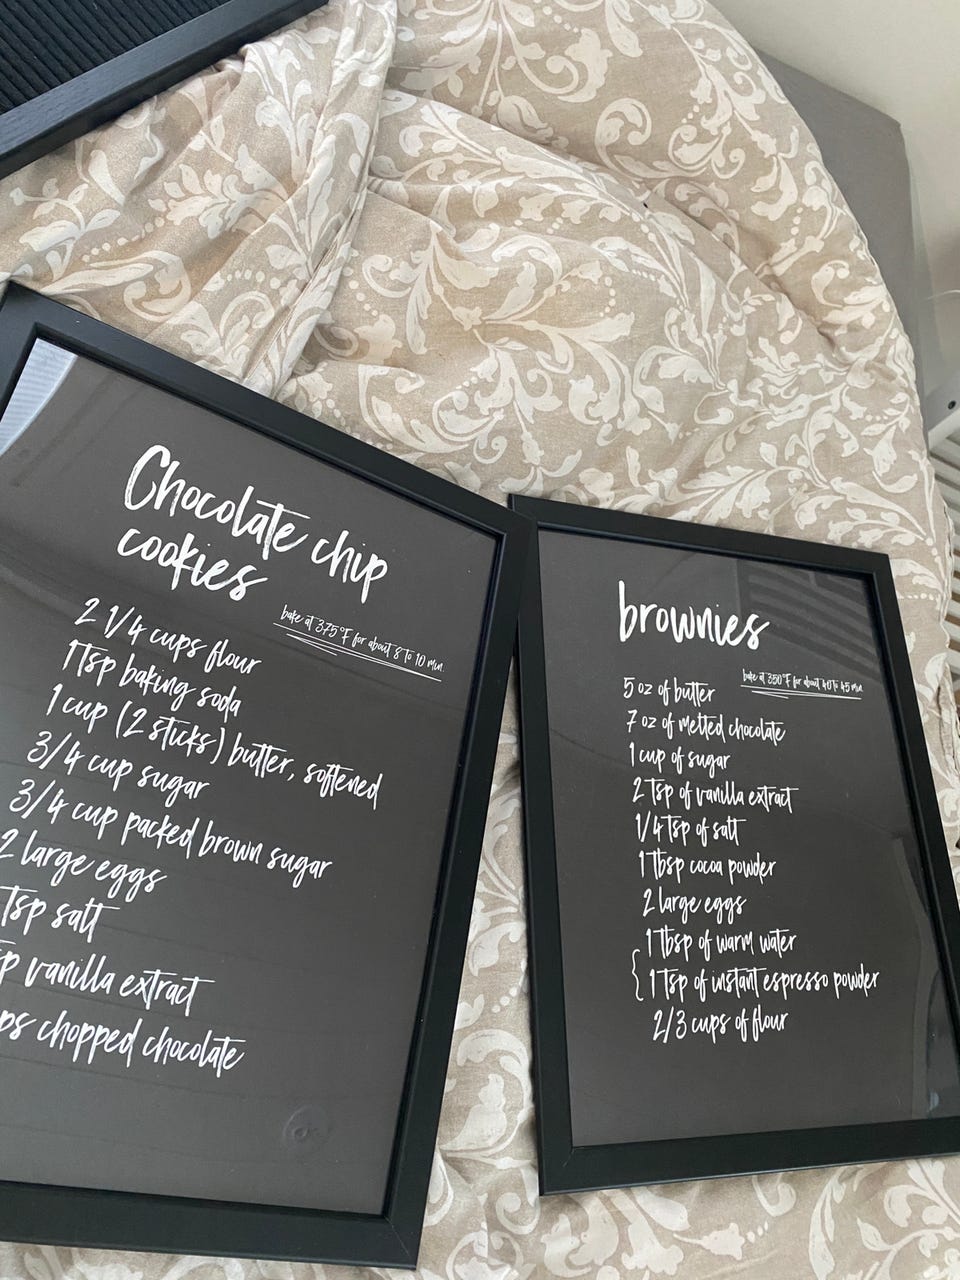 Chocolate chip
cookies
bake at 375°F for about 8 to 10 min.
2 1/4 cups flour
1 tsp baking soda
1 cup (2 sticks) butter, softened
3/4 cup sugar
3/4 cup packed brown sugar
2 large eggs
tsp salt
vanilla extract
chopped chocolate
brownies
bake at 350°F for about 40 to 45 min.
5 oz of butter
7 oz of melted chocolate
1 cup of sugar
2 tsp of vanilla extract
1/4 tsp of salt
1 tbsp cocoa powder
2 large eggs
1 tbsp of warm water
1 tsp of instant espresso powder
2/3 cups of flour